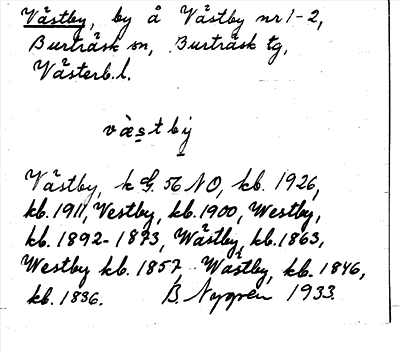 Västby, by å Västby nr 1-2,
Burträsk sn, Burträsk tg,
Västerb. l.
väs̲t bẏ̲
Västby, k G. 56 NO, kb. 1926,
kb. 1911, Vestby, kb. 1900, Westby,
kb. 1892-1873, Wästby, kb. 1863,
Westby kb. 1857, Wästby, kb. 1846,
kb. 1836. B. Nygren 1933.